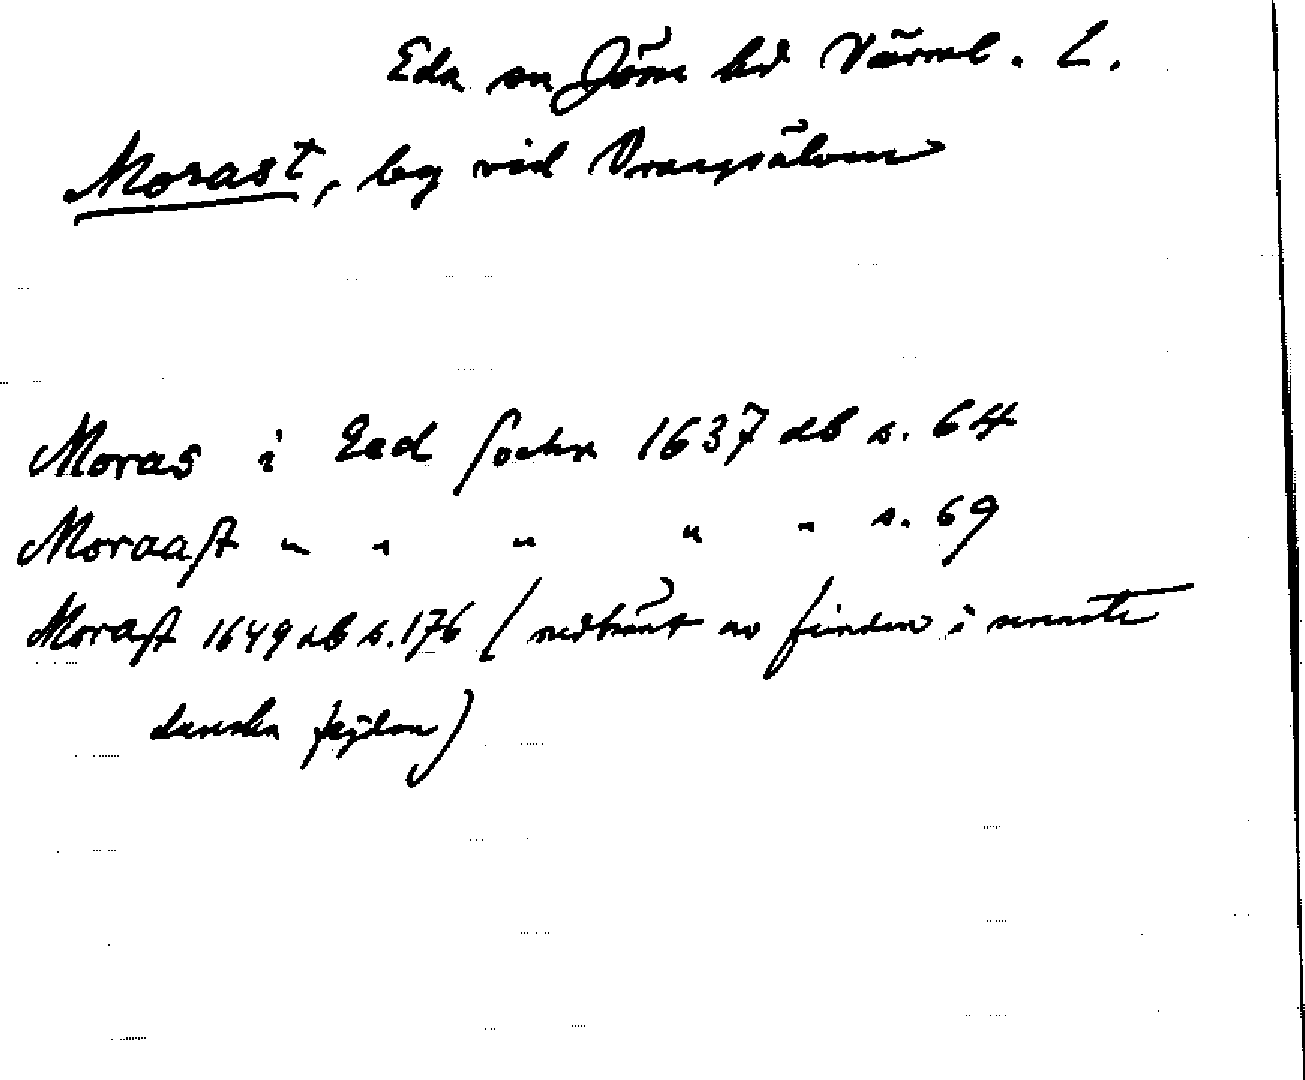 Eda sn Jösse hd Värml. L.
Morast, by vid Vrangsälven
Moras i Eed Sochn 1637 db s. 64
Moraast " " " " " s. 69
Morast 1649 db s. 176 (nedbränt av fienden i senaste
danska fejden)